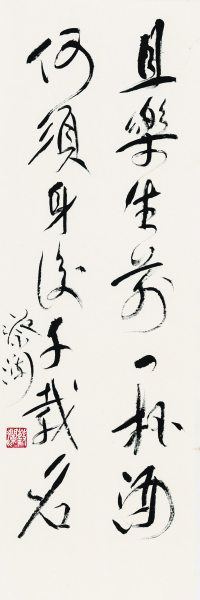 且樂生前一杯酒
何須身後千載名